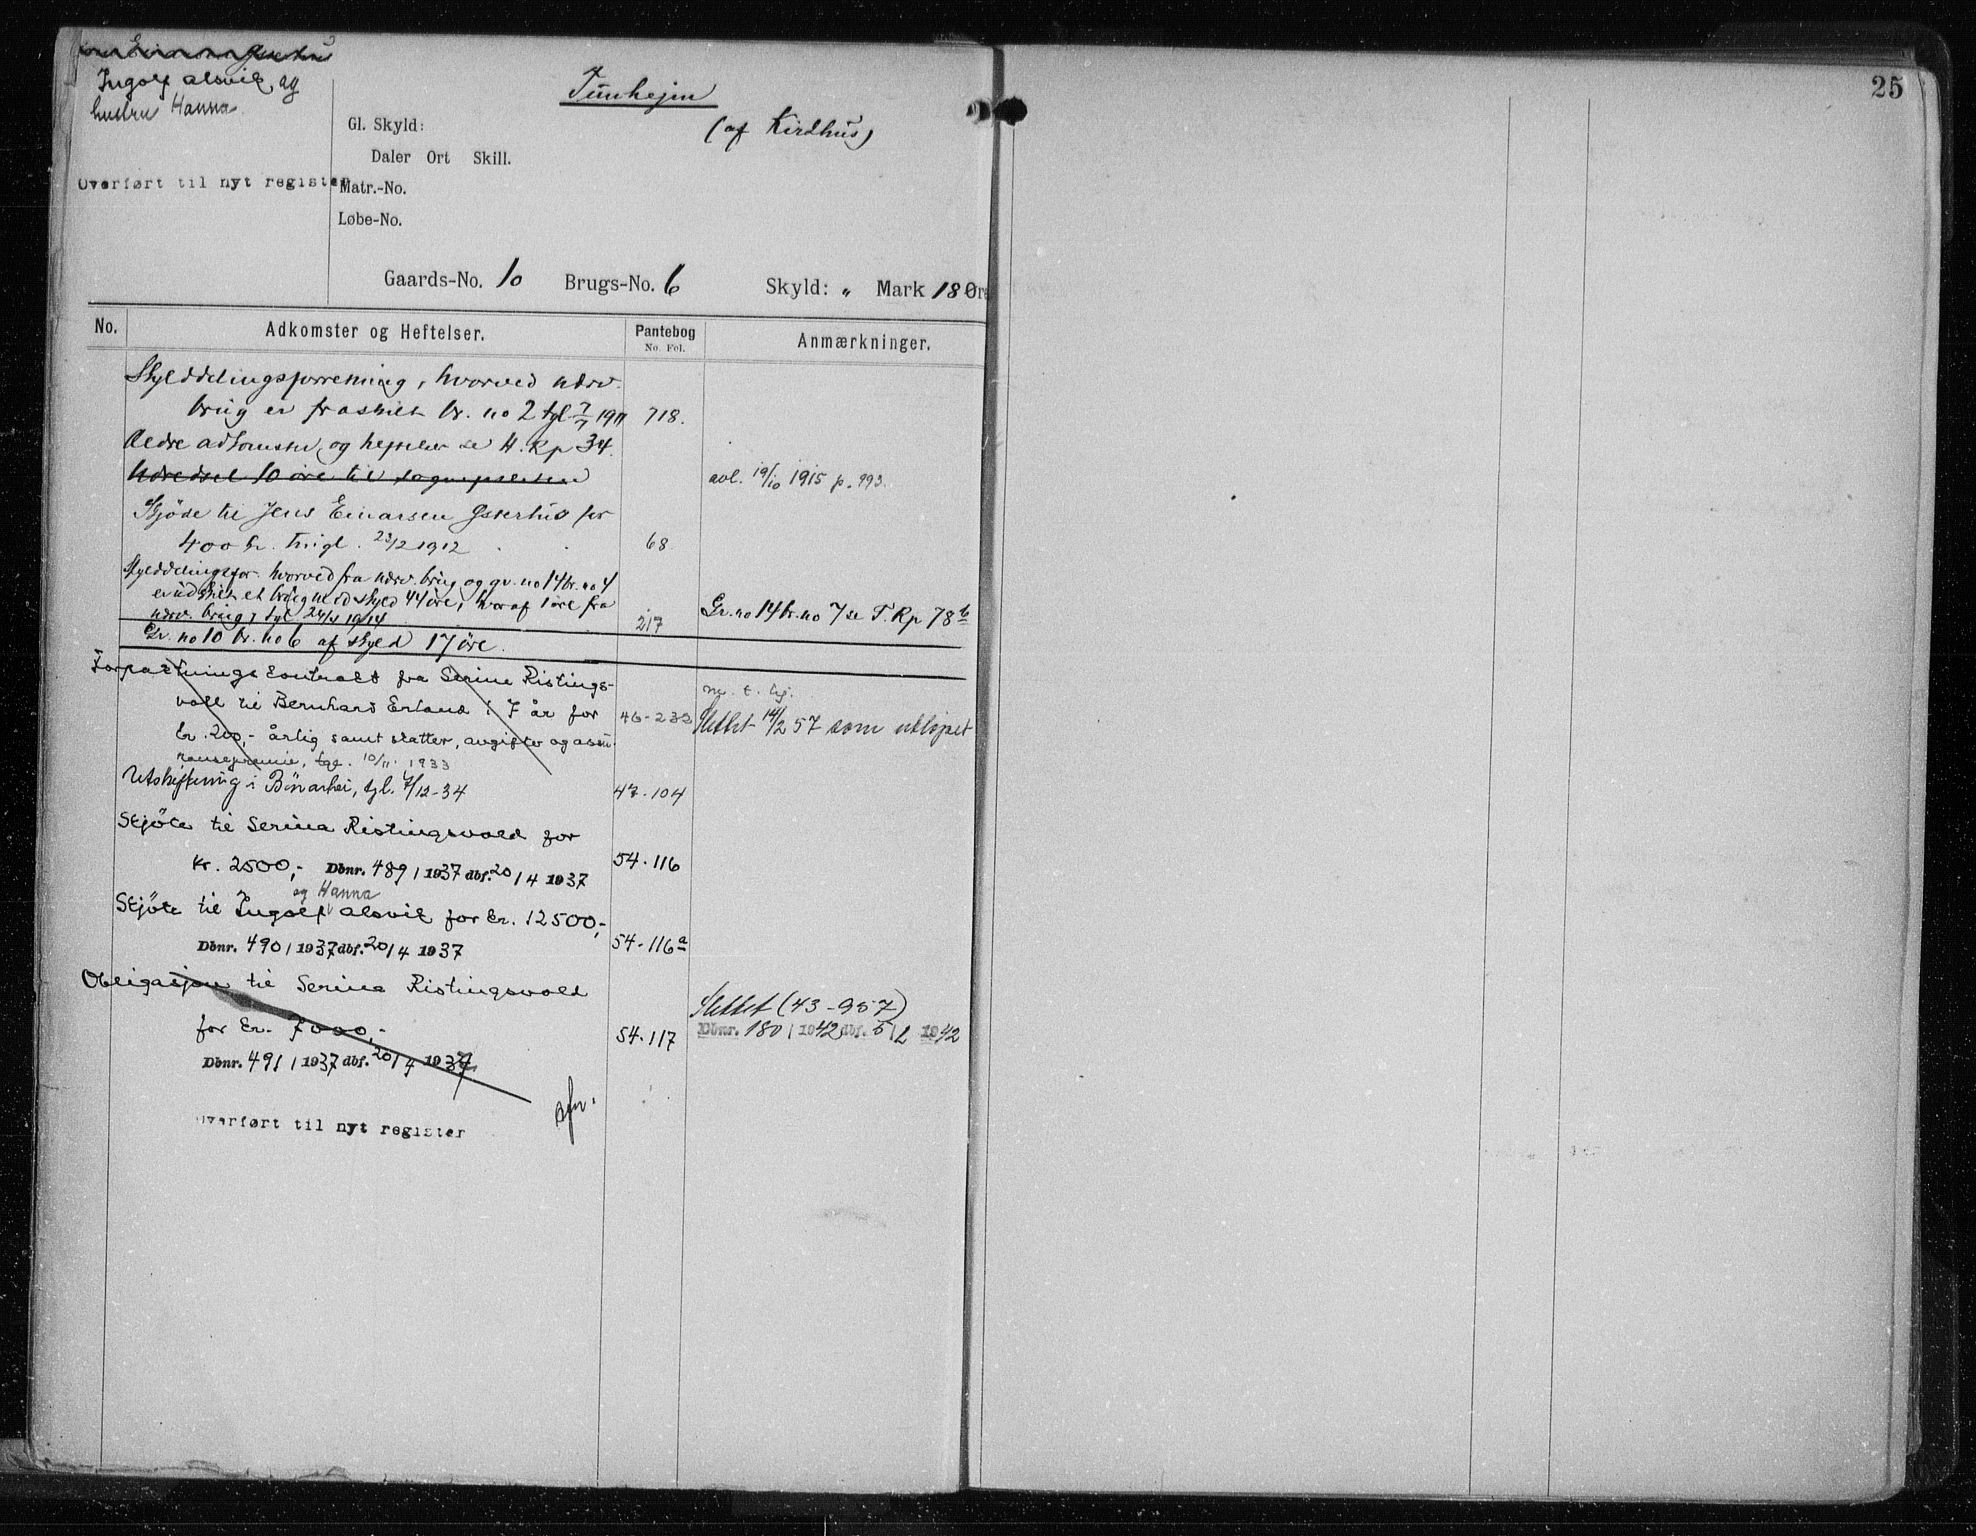 25
Ingolf Alsvik, og
hustru Hanna.
Tunhejm
(af Kirdhus)
Gl. Skyld:
Daler Ort Skill.
Overført til nyt register
Matr.-No.
Løbe-No.
Gaards-No. 10 Brugs-No. 6 Skyld: „ Mark 18 Øre
No. Adkomster og Heftelser. Pantebog Anmærkninger.
No. Fol.
Skylddelingsforretning, hvorved nærv.
brug er fraskilt br. no 2 tgl. 7/7 1911 718.
Ældre adkomster og heftelser se H. Rp 34.
Udredsel 10 øre til sogneprésten avl. 19/10 1915 p. 993.
Skjöde til Jens Einarsen Østerhus for
400 kr. tingl. 23/2 1912 68.
Skylddelingsfor. hvorved fra nærv. brug og gr. no 14 br. no 4
er udskilt et brug med skyld 44 øre, hvoraf 1 øre fra
nærv. brug, tgl. 24/4 1914 217 Gr. no 14 br. no 7 se F. Rp 78 b
Gr. no 10 br. no 6 af skyld 17 øre.
Forpaktningskontrakt fra Serine Ristings-
voll til Bernhard Erland i 7 år for 46-233 Slettet 14/2 57 som utløpet
kr. 200,- årlig samt skatter, avgifter og assu-
ransepremie, tgl. 10/11 1933
Utskiftning i Bönarhei, tgl. 7/12-34 47-104
Skjöte til Serina Ristingsvold for
kr. 2500,- Dbnr. 489 / 1937 dbf. 20 / 4 1937 54-116
og Hanna
Skjöte til Ingolf Alsvik for kr. 12500,-
Dbnr. 490 / 1937 dbf. 20 / 4 1937 54-116 a
Obligasjon til Serina Ristingsvold
Slettet (43-957)
for kr. 7000,- 54-117 Dbnr. 180 / 1942 dbf. 5 / 2 1942
Dbnr. 491 / 1937 dbf. 20 / 4 1937
Overført til nyt register